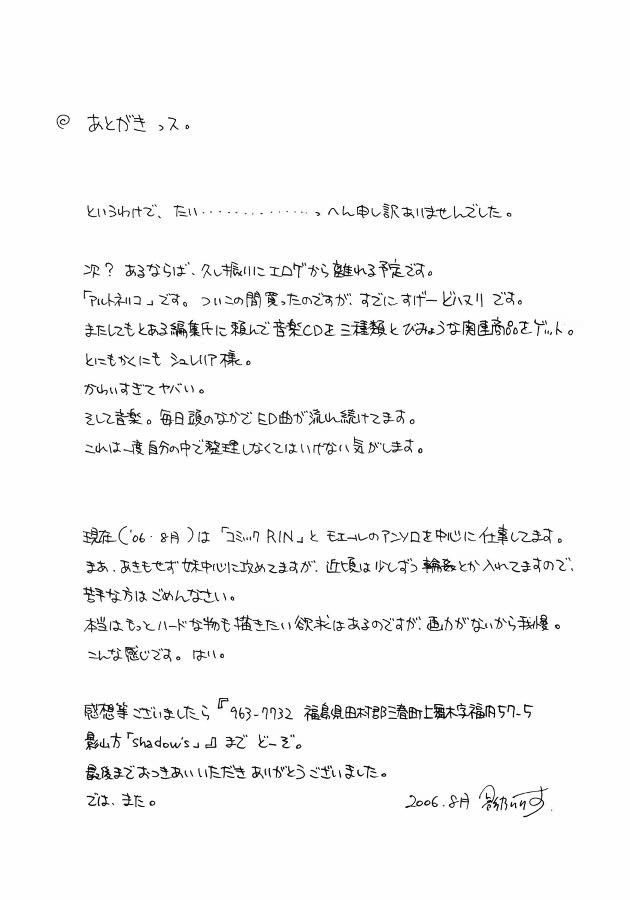 @ あとがきっス。
というわけで、たい・・・・・・・・・・・・・・っへん申し訳ありませんでした。
次？あるならば、久し振りにエロゲから離れる予定です。
「アルトネリコ」です。ついこの間買ったのですが、すでにすげードハマリです。
またしてもとある編集氏に頼んで音楽CDを三種類とびみょうな関連商品をゲット。
とにもかくにもシュレリア様。
かわいすぎてヤバい。
そして音楽。毎日頭のなかでED曲が流れ続けてます。
これは一度自分の中で整理しなくてはいけない気がします。
現在('06・8月)は「コミックRIN」とモエールのアンソロを中心に仕事してます。
まあ、あきもせず妹中心に攻めてますが、近頃は少しずつ輪姦とか入れてますので、
苦手な方はごめんなさい。
本当はもっとハードな物も描きたい欲求はあるのですが、画力がないから我慢。
こんな感じです。はい。
感想等ございましたら『963-7732 福島県田村郡三春町上舞木字福内57-5
影山方「shadow's」』までどーぞ。
最後までおつきあいいただきありがとうございました。
では、また。
2006.8月